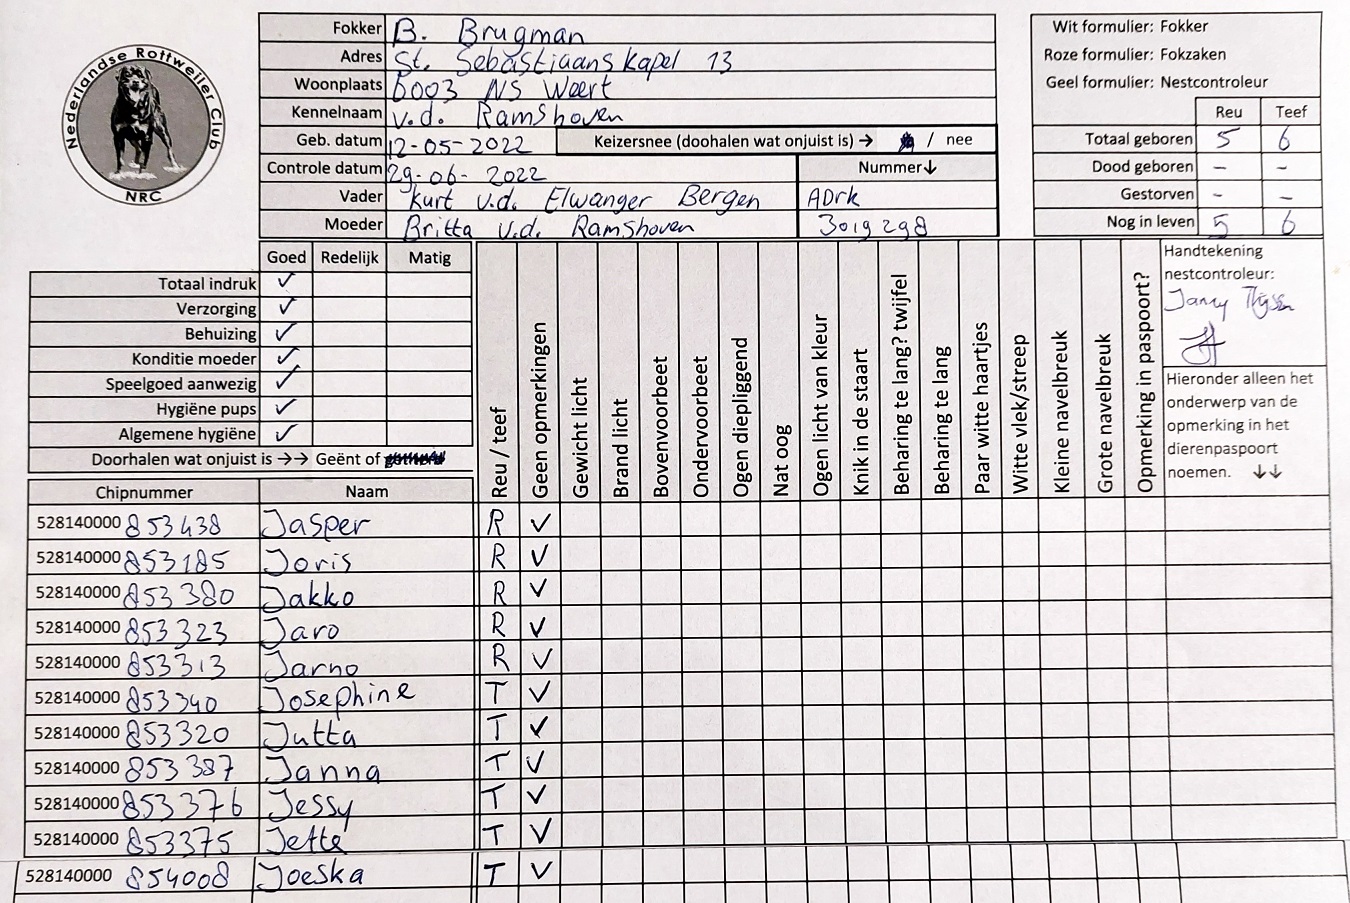 Nederlandse Rottweiler Club
NRC
Fokker B. Brugman
Adres St. Sebastiaans kapel 13
Woonplaats 6003 NS Weert
Kennelnaam v.d. Ramshoven
Geb. datum 12-05-2022 Keizersnee (doohalen wat onjuist is) → / nee
Controle datum 29-06-2022 Nummer↓
Vader Kurt v.d. Elwanger Bergen ADrk
Moeder Britta v.d. Ramshoven 3019298
Wit formulier: Fokker
Roze formulier: Fokzaken
Geel formulier: Nestcontroleur
Reu Teef
Totaal geboren 5 6
Dood geboren - -
Gestorven - -
Nog in leven 5 6
Goed Redelijk Matig
Totaal indruk ✓
Verzorging ✓
Behuizing ✓
Konditie moeder ✓
Speelgoed aanwezig ✓
Hygiëne pups ✓
Algemene hygiëne ✓
Doorhalen wat onjuist is →→ Geënt of
Reu / teef
Geen opmerkingen
Gewicht licht
Brand licht
Bovenvoorbeet
Ondervoorbeet
Ogen diepliggend
Nat oog
Ogen licht van kleur
Knik in de staart
Beharing te lang? twijfel
Beharing te lang
Paar witte haartjes
Witte vlek/streep
Kleine navelbreuk
Grote navelbreuk
Opmerking in paspoort?
Handtekening
nestcontroleur:
Hieronder alleen het
onderwerp van de
opmerking in het
dierenpaspoort
noemen. ↓↓
Chipnummer Naam
528140000 853438 Jasper R ✓
528140000 853185 Joris R ✓
528140000 853380 Jakko R ✓
528140000 853323 Jaro R ✓
528140000 853313 Jarno R ✓
528140000 853340 Josephine T ✓
528140000 853320 Jutta T ✓
528140000 853387 Janna T ✓
528140000 853376 Jessy T ✓
528140000 853375 Jette T ✓
528140000 854008 Joeska T ✓